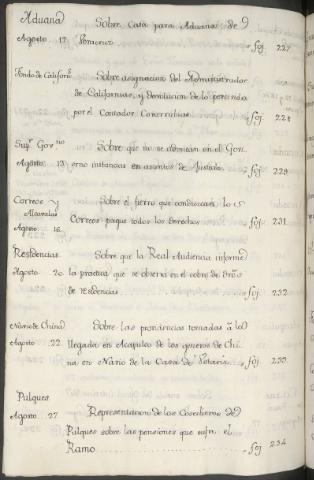 Aduana Sobre Casa para Aduana de
Agosto 17 Veracruz foj. 227
Fondo de Californ.s Sobre asignacion del Administrador
de Californias, y devolucion de lo
por el Contador foj. 228
Sup.r Gov.no Sobre que no se admitan en el Govi
Agosto 13 erno instancias en asuntos de Justicia foj. 229
Correos y Sobre el fierro que conducen los
Alcavalas Correos pague todos los derechos foj. 231
Agosto 16
Residencias Sobre que la Real Audiencia informe
Agosto 20 la practica que se observa en el cobre de
de residencias foj. 232
Navio de China Sobre las providencias tomadas á la
Agosto 22 llegada en Acapulco de los generos de Chi
na en Navio de la Casa de foj. 233
Pulques
Agosto 27 Representacion de los Cosecheros de
Pulques sobre las pensiones que sufre el
Ramo foj. 234